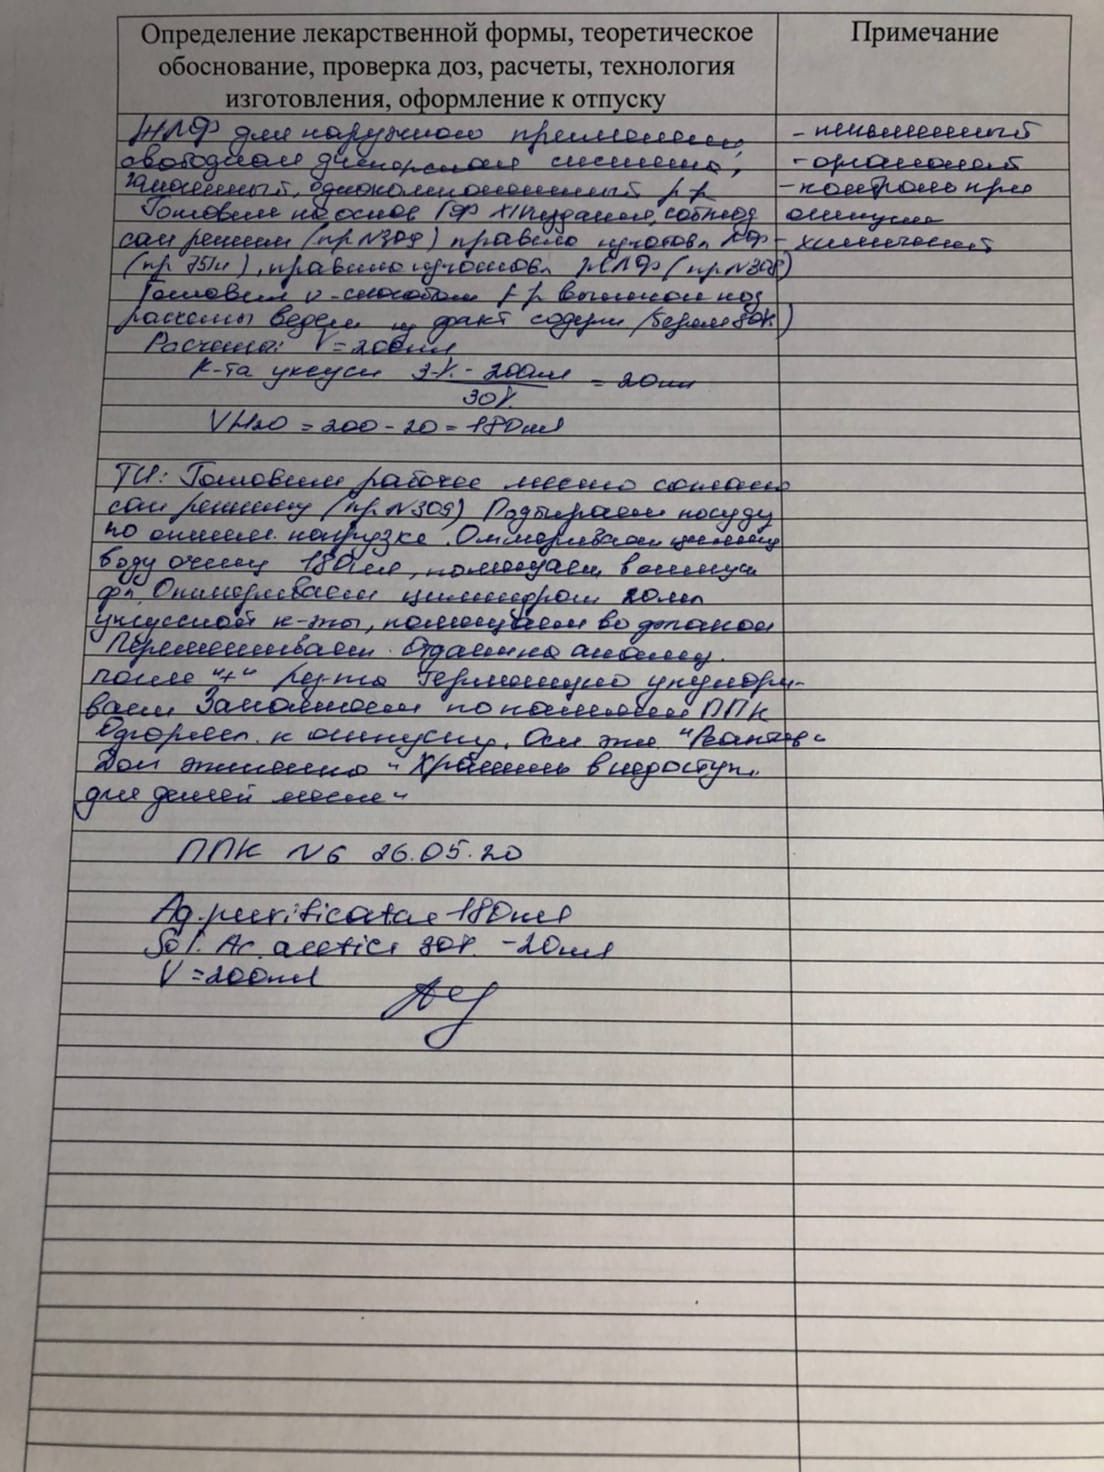 Определение лекарственной формы, теоретическое
обоснование, проверка доз, расчеты, технология
изготовления, оформление к отпуску
Примечание
ЖЛФ для наружного применения,
свободная дисперсная система,
однокомпонентный р-р
Готовим на основ ГФ издания, соблюд
сан режим (пр N309) правила изготовл ЛФ
(пр 751н), правила изготовл ЖЛФ (пр N308)
Готовим р-р
расчеты ведем из факт содерж (берем 30%)
Расчеты: V = 200мл
К-та уксусн 3% - 200мл = 20мл
30%
VH2O = 200 - 20 = 180мл
ТИ: Готовим рабочее место согласно
сан режиму (пр. N309) Подбираем посуду
по оптим. нагрузке. Отмериваем цилиндр
воду очищ 180мл, помещаем в отпуск
фл. Отмериваем цилиндром 20мл
уксусной к-ты, помещаем во флакон
Перемешиваем. Отдаем на анализ.
после "+" рез-та Герметично укупори-
ваем Заполняем по памяти ППК
Оформл. к отпуску.
Доп этикетка "Хранить в недоступ.
для детей месте"
ППК N6 26.05.20
Aq. purificatae 180мл
Sol. Ac. acetici 30% - 20мл
V = 200мл
- письменный
- органолеп
- контроль при
отпуске
- химический